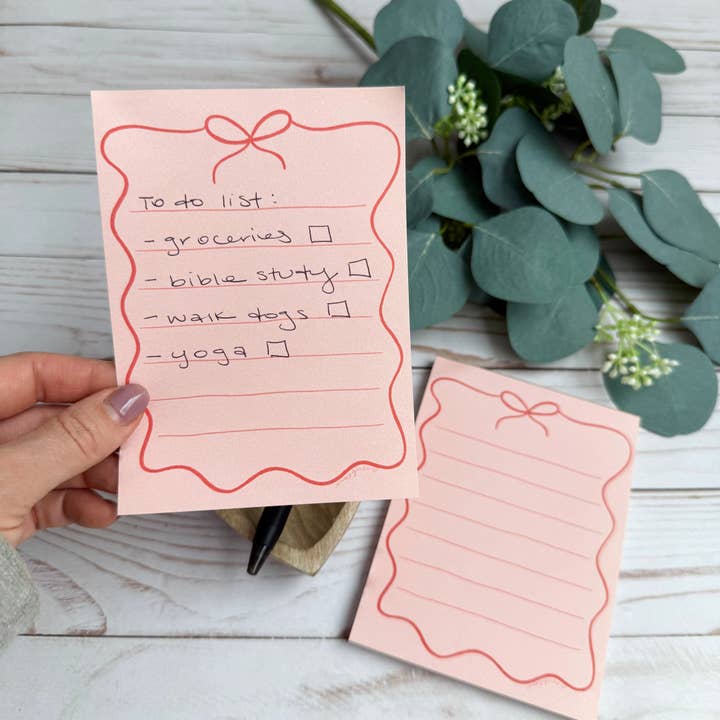 To do list:
- groceries
- bible study
- walk dogs
- yoga